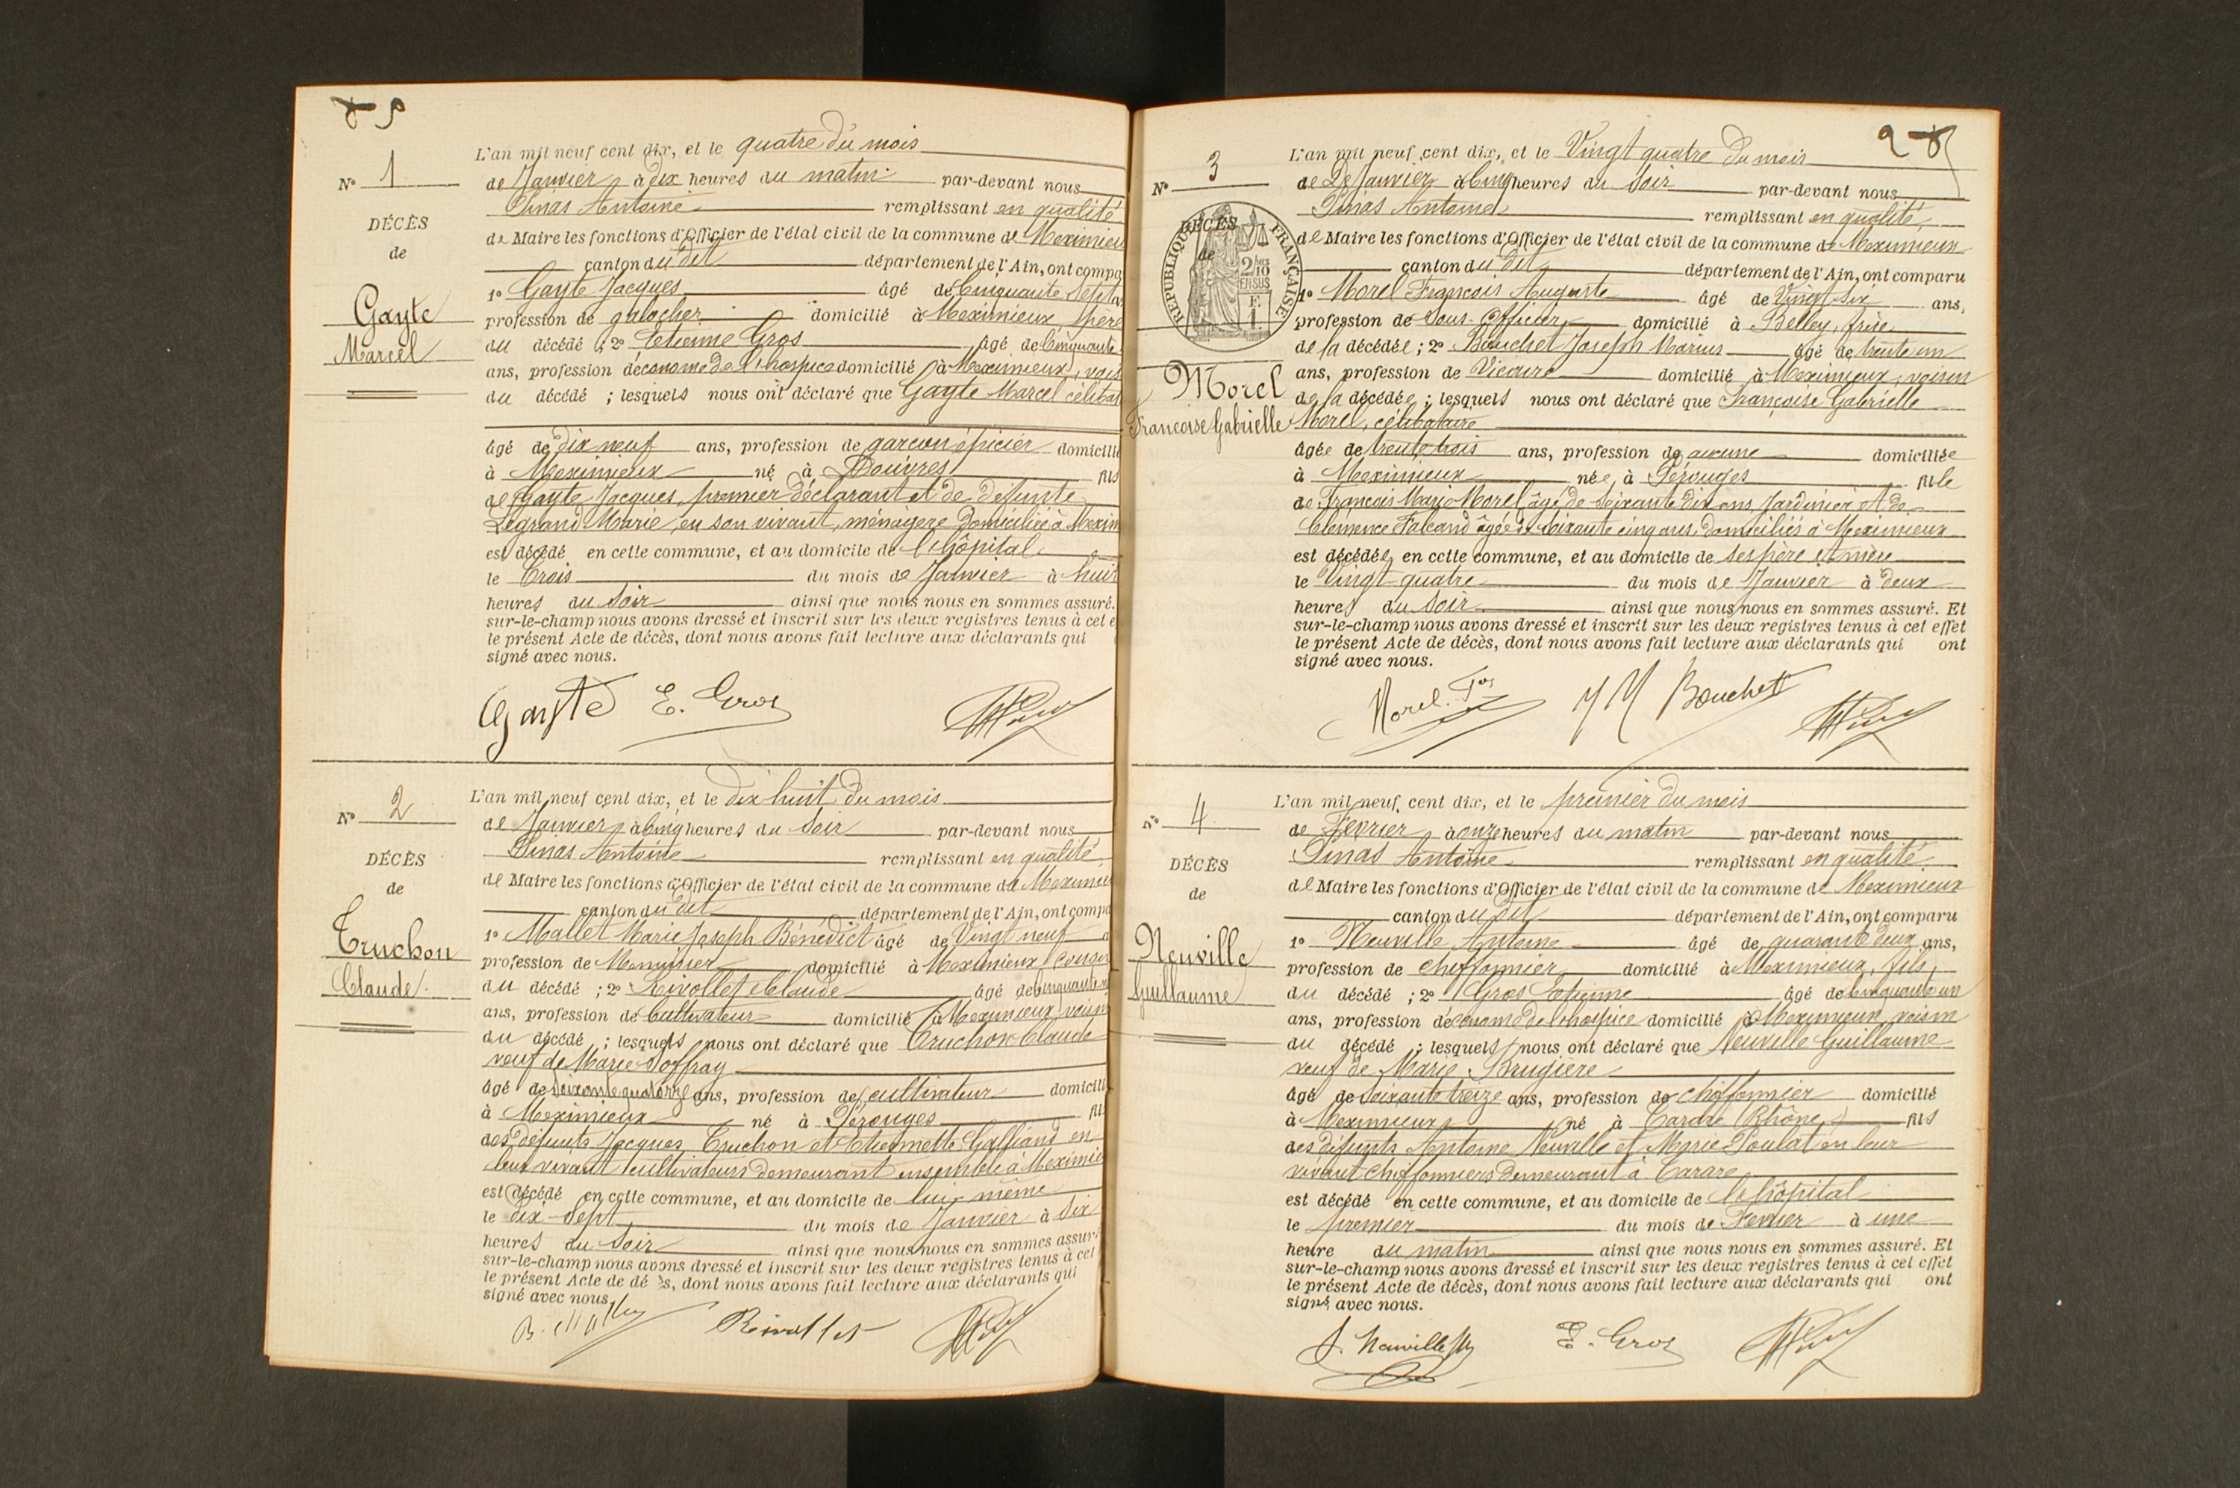 N° 1
DÉCÈS
de
Gayte
Marcel
L'an mil neuf cent dix, et le quatre du mois
de Janvier à dix heures du matin par-devant nous
Pinas Antoine remplissant en qualité
de Maire les fonctions d'Officier de l'état civil de la commune de Meximieu
canton du dit département de l'Ain, ont compa
1° Gayte Jacques âgé de Cinquante sept
profession de galocher domicilié à Meximieux père
du décédé ; 2° Etienne Gros âgé de Cinquante
ans, profession d'économe de l'hospice domicilié à Meximieux, vois
du décédé ; lesquels nous ont déclaré que Gayte Marcel célibat
âgé de dix neuf ans, profession de garçon épicier domicilié
à Meximieux né à Douvres fils
de Gayte Jacques, premier déclarant et de défunte
Legrand Marie, en son vivant, ménagère domiciliée à Mexim
est décédé en cette commune, et au domicile de l'hôpital
le trois du mois de Janvier à huit
heures du soir ainsi que nous nous en sommes assuré.
sur-le-champ nous avons dressé et inscrit sur les deux registres tenus à cet e
le présent Acte de décès, dont nous avons fait lecture aux déclarants qui
signé avec nous.
Gayte E. Gros
N° 2
DÉCÈS
de
Truchon
Claude
L'an mil neuf cent dix, et le dix huit du mois
de Janvier à cinq heures du soir par-devant nous
Pinas Antoine remplissant en qualité
de Maire les fonctions d'Officier de l'état civil de la commune de Meximieu
canton du dit département de l'Ain, ont compa
1° Mallet Marie Joseph Bénédict âgé de Vingt neuf a
profession de Menuisier domicilié à Meximieux
du décédé ; 2° Rivollet Claude âgé de Cinquante
ans, profession de Cultivateur domicilié à Meximieux, voisin
du décédé ; lesquels nous ont déclaré que Truchon Claude
veuf de Marie Soffray
âgé de soixante quatorze ans, profession de cultivateur domicili
à Meximieux né à Pérouges fils
des défunts Jacques Truchon et Etiennette Galliand en
leur vivant cultivateurs demeurant ensemble à Meximie
est décédé en cette commune, et au domicile de lui même
le dix-sept du mois de Janvier à six
heures du soir ainsi que nous nous en sommes assuré
sur-le-champ nous avons dressé et inscrit sur les deux registres tenus à cet
le présent Acte de décès, dont nous avons fait lecture aux déclarants qui
signé avec nous.
Rivollet
2
N° 3
DÉCÈS
de
RÉPUBLIQUE FRANÇAISE
2/10 EN SUS
Morel
Francoise Gabrielle
L'an mil neuf cent dix, et le Vingt quatre du mois
de De Janvier à Cinq heures du soir par-devant nous
Pinas Antoine remplissant en qualité
de Maire les fonctions d'Officier de l'état civil de la commune de Meximieux
canton du dit département de l'Ain, ont comparu
1° Morel François Auguste âgé de Vingt six ans,
profession de Sous-Officier domicilié à Belley, frère
de la décédée ; 2° Bouchet Joseph Marius âgé de trente un
ans, profession de Vicaire domicilié à Meximieux, voisin
de la décédée ; lesquels nous ont déclaré que Françoise Gabrielle
Morel, célibataire
âgée de trente trois ans, profession de aucune domiciliée
à Meximieux née à Pérouges fille
de François Marie Morel âgé de soixante dix ans, Jardinier et de
Clémence Falcand âgée de soixante cinq ans, domiciliés à Meximieux
est décédée en cette commune, et au domicile de ses père et mère
le Vingt-quatre du mois de Janvier à deux
heures du soir ainsi que nous nous en sommes assuré. Et
sur-le-champ nous avons dressé et inscrit sur les deux registres tenus à cet effet
le présent Acte de décès, dont nous avons fait lecture aux déclarants qui ont
signé avec nous.
Morel. Fois J M Bouchet
N° 4
DÉCÈS
de
Neuville
Guillaume
L'an mil neuf cent dix, et le premier du mois
de Février à onze heures du matin par-devant nous
Pinas Antoine remplissant en qualité
de Maire les fonctions d'Officier de l'état civil de la commune de Meximieux
canton du dit département de l'Ain, ont comparu
1° Neuville Antoine âgé de quarante deux ans,
profession de Chiffonnier domicilié à Meximieux, fils
du décédé ; 2° Gros Etienne âgé de cinquante un
ans, profession d'économe de l'hospice domicilié à Meximieux, voisin
du décédé ; lesquels nous ont déclaré que Neuville Guillaume
veuf de Marie Brugière
âgé de soixante treize ans, profession de chiffonnier domicilié
à Meximieux né à Tarare (Rhône) fils
des défunts Antoine Neuville et Marie Poulat en leur
vivant chiffonniers demeurant à Tarare
est décédé en cette commune, et au domicile de l'hôpital
le premier du mois de Fevrier à une
heure du matin ainsi que nous nous en sommes assuré. Et
sur-le-champ nous avons dressé et inscrit sur les deux registres tenus à cet effet
le présent Acte de décès, dont nous avons fait lecture aux déclarants qui ont
signé avec nous.
A. Neuville fils E. Gros